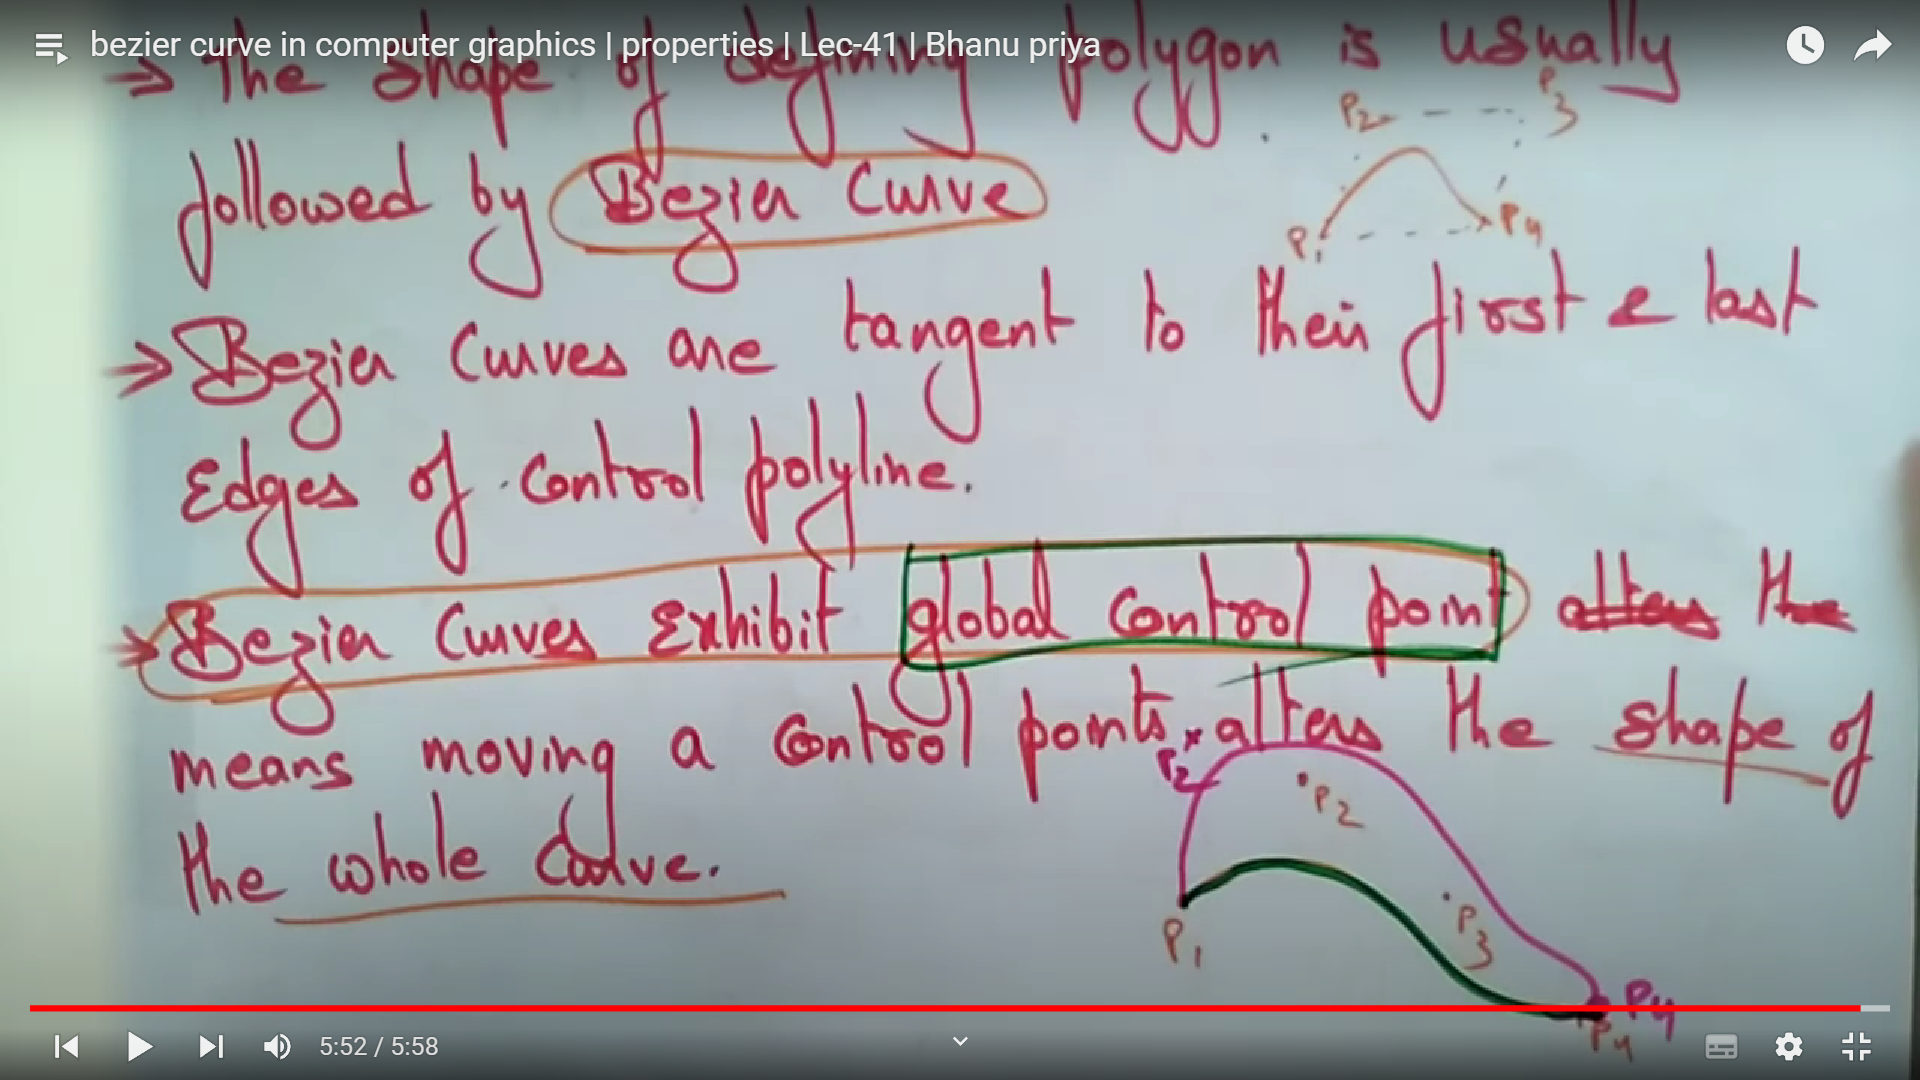 bezier curve in computer graphics | properties | Lec-41 | Bhanu priya
→ The shape of defining polygon is usually
P2 P3
followed by Bezier Curve
P1 P4
→ Bezier Curves are tangent to their first & last
Edges of control polyline.
→ Bezier Curves Exhibit global control point alters the
means moving a control points alters the shape of
P2 P2
the whole Curve.
P1 P3
P4
P4
5:52 / 5:58